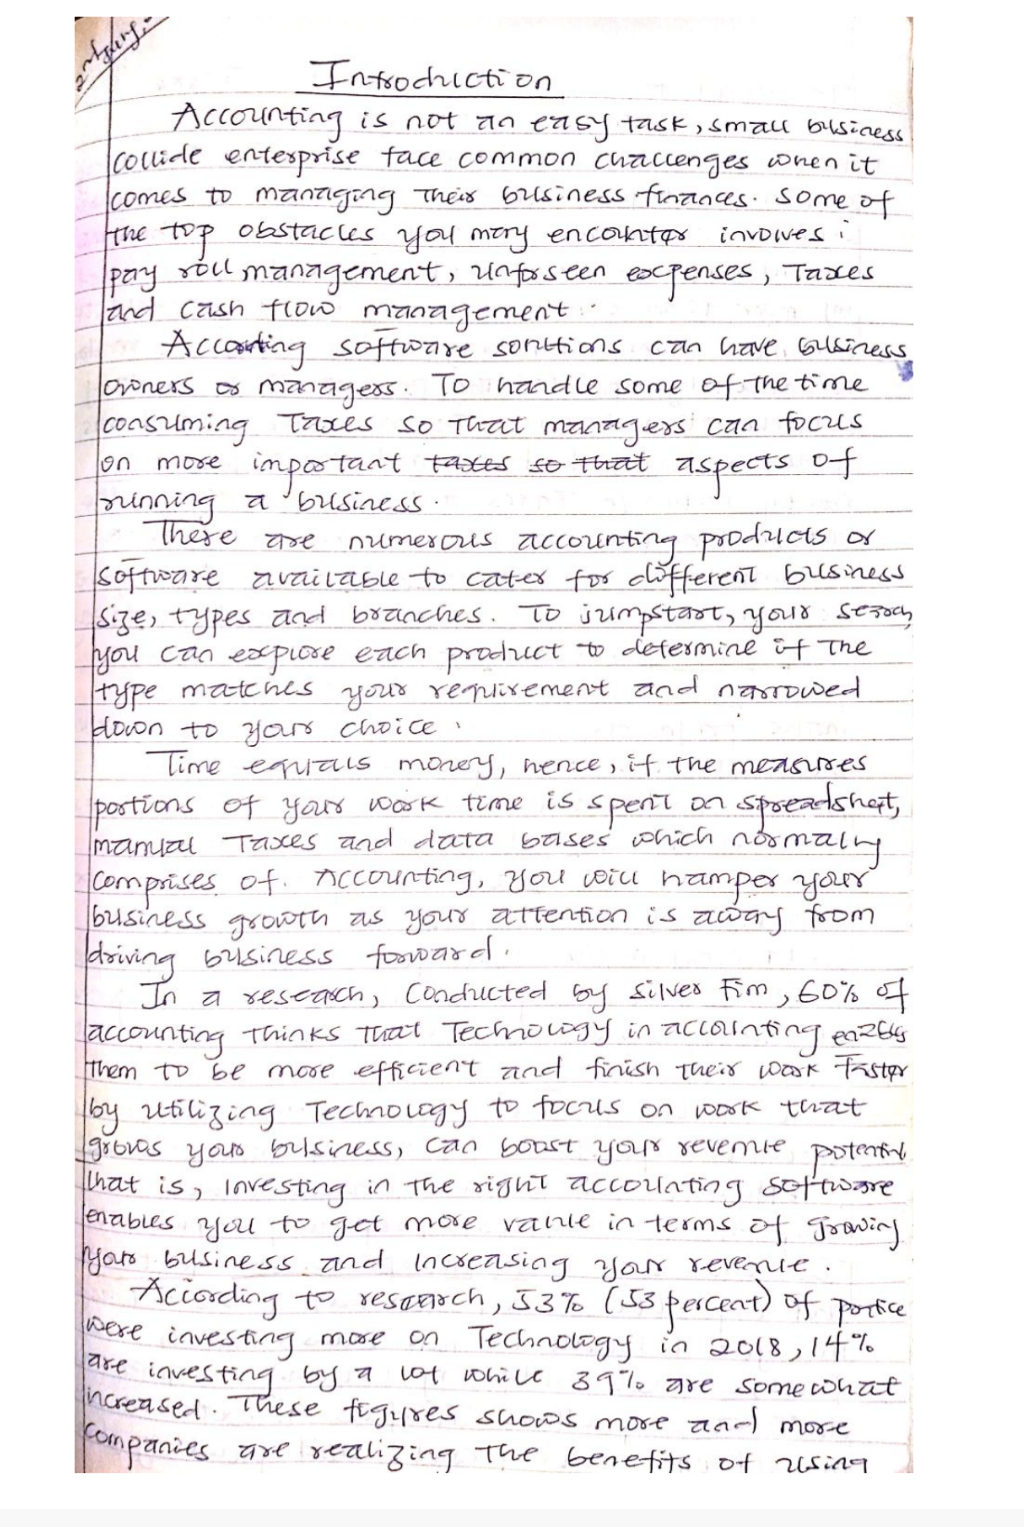 Introduction
Accounting is not an easy task, small business
collide enterprise face common challenges when it
comes to managing their business finances. Some of
the top obstacles you may encounter involves:
pay roll management, unforseen expenses, Taxes
and cash flow management.
Accounting software solutions can have business
owners or managers. To handle some of the time
consuming Taxes so that managers can focus
on more important taxes so that aspects of
running a business.
There are numerous accounting products or
software available to cater for different business
size, types and branches. To jumpstart, your search
you can explore each product to determine if the
type matches your requirement and narrowed
down to your choice.
Time equals money, hence, if the measures
portions of your work time is spent on spreadsheet,
manual Taxes and data bases which normally
comprises of. Accounting, you will hamper your
business growth as your attention is away from
driving business forward.
In a research, Conducted by silver Fim, 60% of
accounting thinks that Technology in accounting enables
them to be more efficient and finish their work faster
by utilizing Technology to focus on work that
grows your business, can boost your revenue potential
that is, investing in the right accounting software
enables you to get more value in terms of growing
your business and increasing your revenue.
According to research, 53% (53 percent) of
were investing more on Technology in 2018, 14%
are investing by a lot while 39% are somewhat
increased. These figures shows more and more
companies are realizing the benefits of using